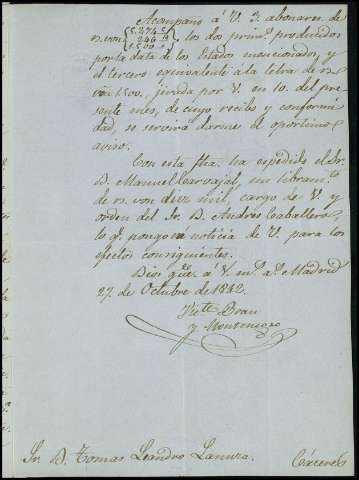 Acompaño á V. 3. abonares de
r.s von { 5.274.5 246.18 1.500.. } los dos prim.s producidos
por la data de los Estados mencionados, y
el tercero equivalente á la letra de r.s
von 1500. girada por V. en 10. del pre
sente mes, de cuyo recibo y conformi
dad, se servirá darme el oportuno
aviso.
Con esta fha. ha expedido el Sr.
D. Manuel Carvajal, un libram.to
de r.s von diez mil, cargo de V. y
orden del Sr. D. Andrés Caballero,
lo q.e pongo en noticia de V. para los
efectos consiguientes.
Dios gue. á V. m.s a.s Madrid
27. de Octubre de 1842.
y Montenegro
Sr. D. Tomas Leandro Lanuza. Cáceres